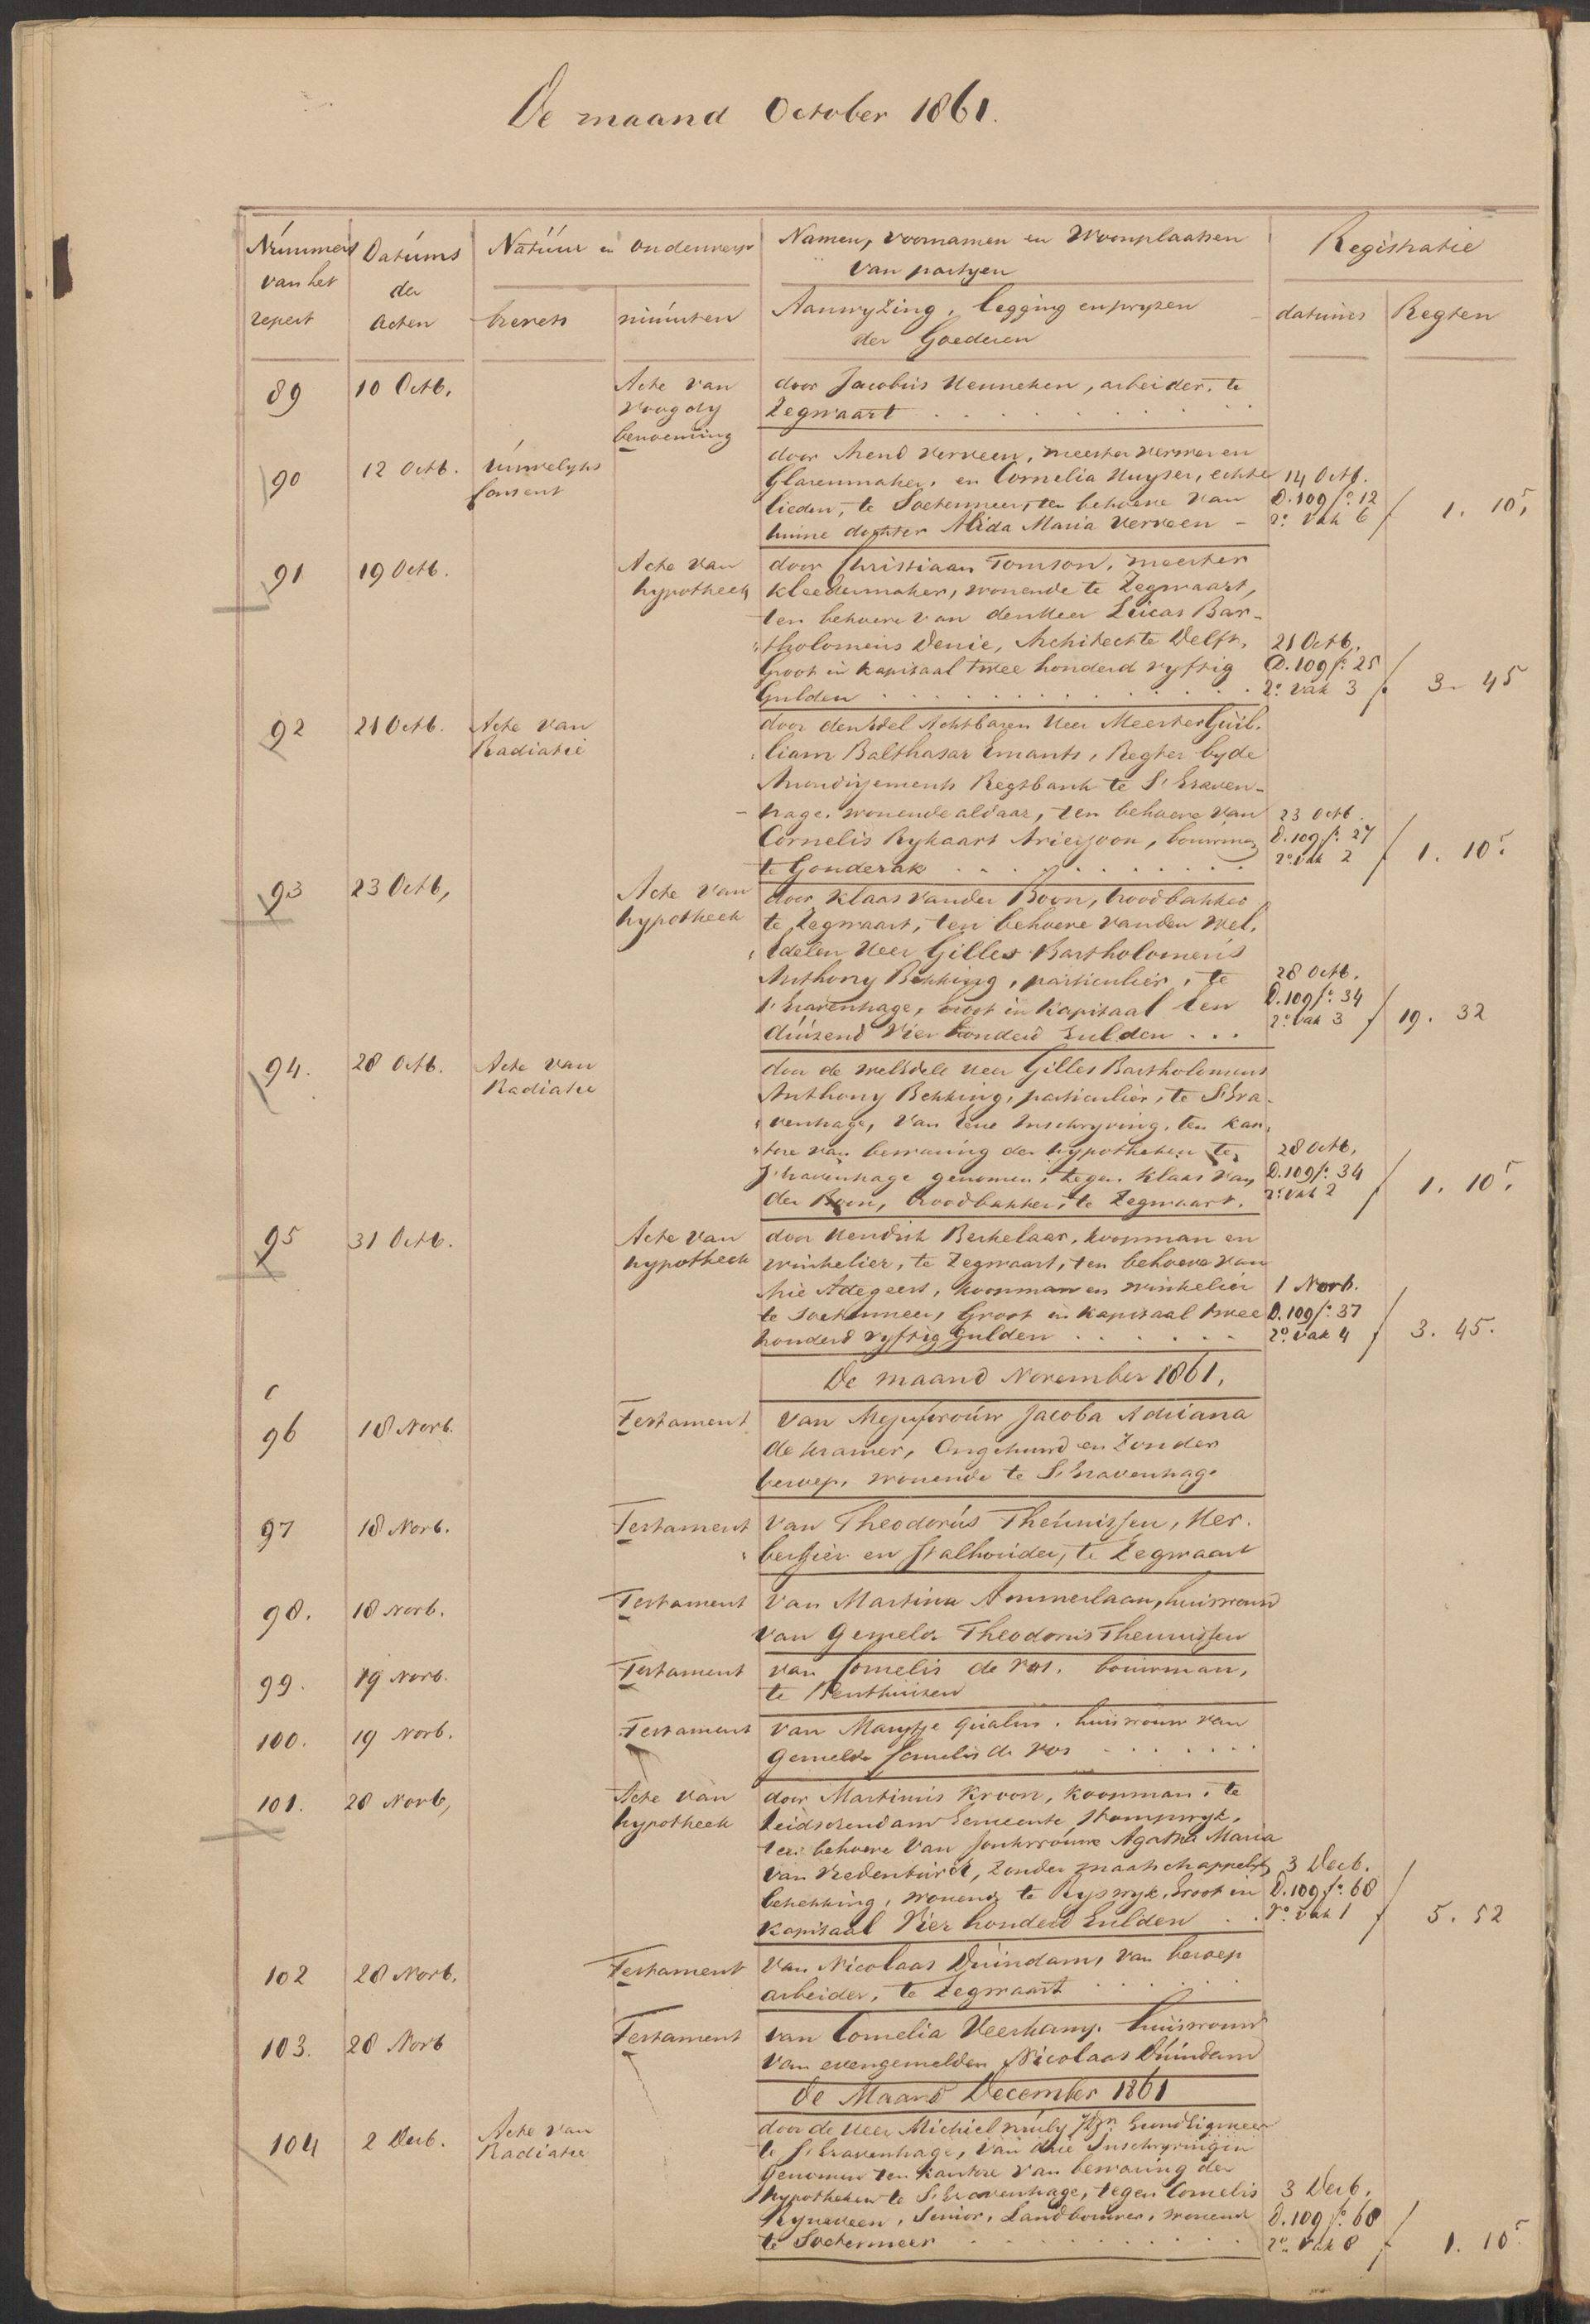 De maand October 1861.
Nummers van het repert
Datums der Acten
Natuur en onderwerp
Namen, voornamen en Woonplaatsen
van partyen
Registratie
brevets
minuten
Aanwyzing, legging en pryzen
der Goederen
datums
Regten
89 10 Octb. Acte van voogdy benoeming
door Jacobus Henneken, arbeider, te
Zegwaart
90 12 Octb. Huwelyks Consent
door Arend Verveen, meester verwer en
Glazenmaker, en Cornelia Huyser, echte
lieden, te Soetermeer, ten behoeve van
hunne dochter Alida Maria Verveen
14 Octb.
D. 109 fo. 12
ro. vak 6
1. 10 5
91 19 Octb. Acte van hypotheek
door Christiaan Tomson, meester
kleedermaker, wonende te Zegwaart,
ten behoeve van den Heer Lucas Bar-
tholomeus Denie, Architect te Delft,
Groot in kapitaal twee honderd vyftig
Gulden
21 Octb.
D. 109 fo. 25
ro. vak 3
3. 45
92 21 Octb. Acte van Radiatie
door den Edel Achtbaren Heer Meester Guil-
liam Balthasar Emants, Regter by de
Arrondissements Regtbank te S'Graven-
hage, wonende aldaar, ten behoeve van
Cornelis Rykaart Arieszoon, bouwman
te Gouderak
23 Octb.
D. 109 fo. 27
ro. vak 2
1. 10 5
93 23 Octb. Acte van hypotheek
door Klaas van der Boon, broodbakker
te Zegwaart, ten behoeve van den Wel
Edelen Heer Gilles Bartholomeus
Anthony Bekking, particulier, te
s'Gravenhage, Groot in Kapitaal Een
duizend Vier honderd Gulden
28 Octb.
D. 109 fo. 34
ro. vak 3
19. 32
94. 28 Octb. Acte van Radiatie
door de WelEdele Heer Gilles Bartholomeus
Anthony Bekking, particulier, te S'Gra-
venhage, van Eene Inschryving, ten kan-
tore van bewaring der hypotheken te
s'Gravenhage genomen, tegen Klaas van
der Boon, broodbakker, te Zegwaart.
28 Octb.
D. 109 fo. 34
ro. vak 2
1. 10 5
95 31 Octb. Acte van hypotheek
door Hendrik Berkelaar, koopman en
winkelier, te Zegwaart, ten behoeve van
Arie Adegeest, koopman en winkelier
te Soetermeer, Groot in Kapitaal twee
honderd vyftig Gulden
1 Novb.
D. 109 fo. 37
ro. vak 4
3. 45.
De maand November 1861.
96 18 Novb. Testament
van Mejufvrouw Jacoba Adriana
de Kramer, Ongehuwd en Zonder
beroep, wonende te S'Gravenhage
97 18 Novb. Testament
van Theodorus Theunissen, Her-
bergier en Stalhouder, te Zegwaart
98. 18 Novb. Testament
van Martina Ammerlaan, huisvrouw
van Gemelde Theodorus Theunissen
99. 19 Novb. Testament
van Cornelis de Vos, bouwman,
te Benthuizen
100. 19 Novb. Testament
van Marytje Qualm, huisvrouw van
gemelde Cornelis de Vos
101. 28 Novb. Acte van hypotheek
door Martinus Kroon, koopman, te
Leidschendam Gemeente Stompwyk,
ten behoeve van Jonkvrouwe Agatha Maria
van Vredenburch, Zonder maatschappelyke
betrekking, wonende te Ryswyk, Groot in
Kapitaal Vier honderd Gulden
3 Decb.
D. 109 fo. 68
ro. vak 1
5. 52
102 28 Novb. Testament
van Nicolaas Duindam, van beroep
arbeider, te Zegwaart
103. 28 Novb Testament
van Cornelia Veerkamp, huisvrouw
van evengemelden Nicolaas Duindam
De Maand December 1861
104 2 Decb. Acte van Radiatie
door de Heer Michiel
te S'Gravenhage, van drie Inschryvingen
Genomen ten kantore van bewaring der
hypotheken te S'Gravenhage, tegen Cornelis
Ryneveen, Senior, Landbouwer, wonend
te Soetermeer
3 Decb.
D. 109 fo. 68
ro. vak 8
1. 10 5